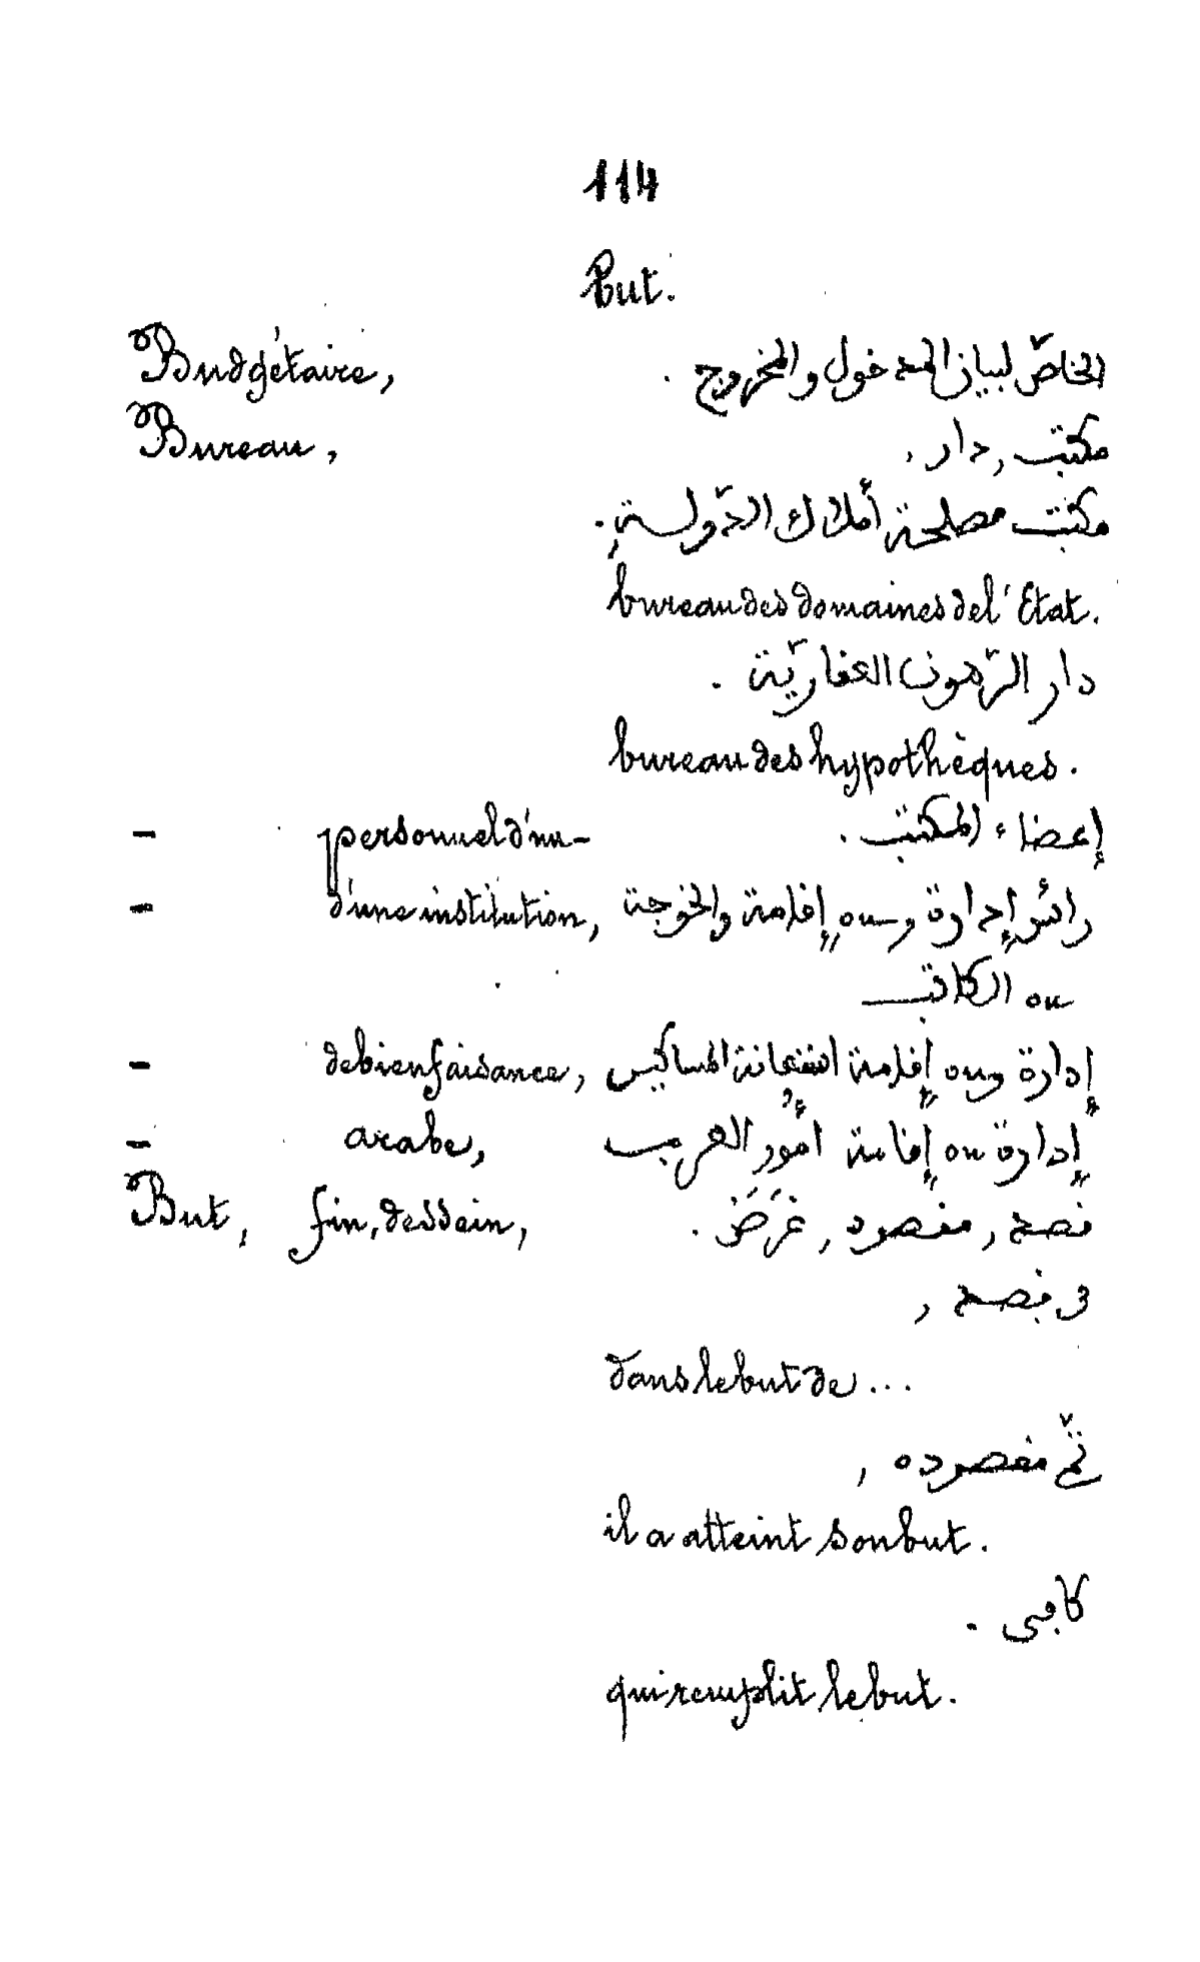 114
But.
Budgétaire, الخاصّ لبيان المدخول والمخروج .
Bureau, مكتب , دار ,
مكتب مصلحة أملاك الدّولة .
bureau des domaines de l'Etat.
دار الرّهون العقاريّة .
bureau des hypothèques.
— personnel d'un — إعضاء المكتب .
— d'une institution, إدارة ou إقامة والخوجة
ou الكاتب
— de bienfaisance, إدارة ou إقامة المساكين
— arabe, إدارة ou إقامة أمور العرب
But, fin, dessein, قصد , مقصود , غَرَض .
في قصد ,
dans le but de ...
تمّ مقصوده ,
il a atteint son but.
كافي .
qui remplit le but.